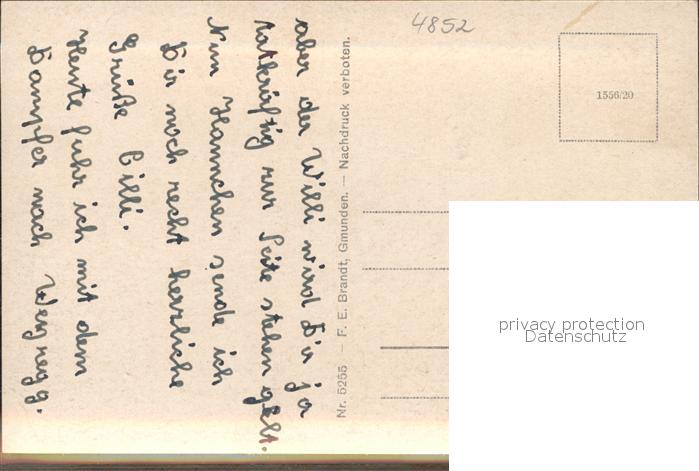 aber der Willi wird Dir ja
tatkräftig zur Seite stehen gelt.
Nun Hannchen sende ich
Dir noch recht herzliche
Grüße Cilli.
Heute fuhr ich mit dem
Dampfer nach Weyregg.
Nr. 5255 — F. E. Brandt, Gmunden. — Nachdruck verboten.
4852
1556/20
privacy protection
Datenschutz